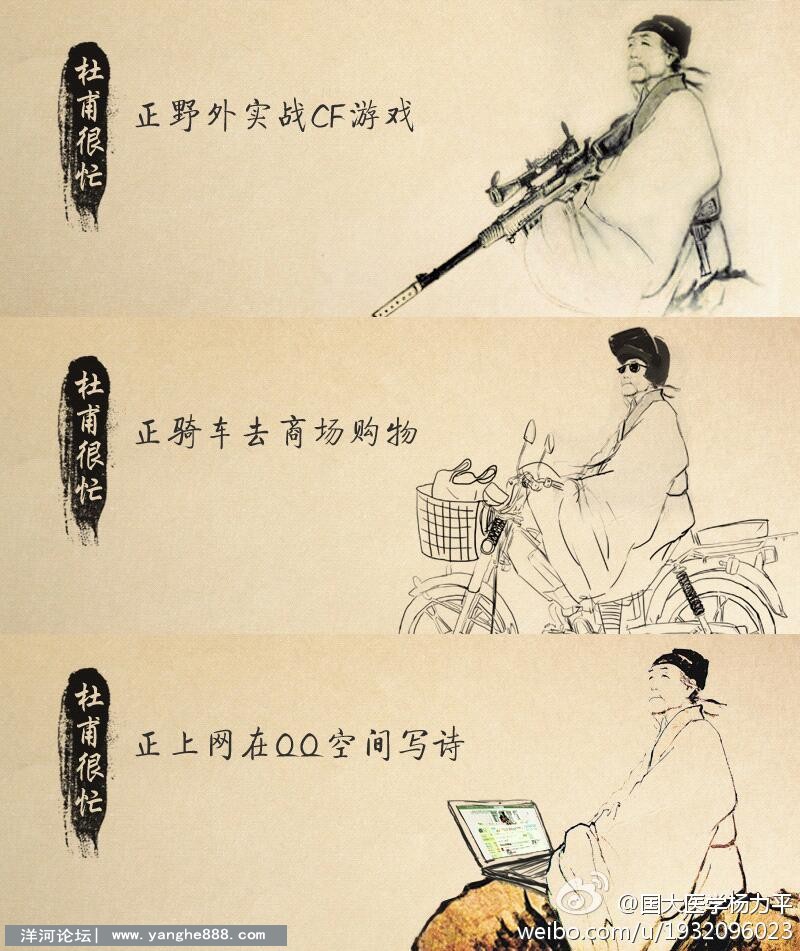 杜甫很忙
正野外实战CF游戏
杜甫很忙
正骑车去商场购物
杜甫很忙
正上网在QQ空间写诗
@国大医学杨力平
洋河论坛| www.yanghe888.com
weibo.com/u/1932096023